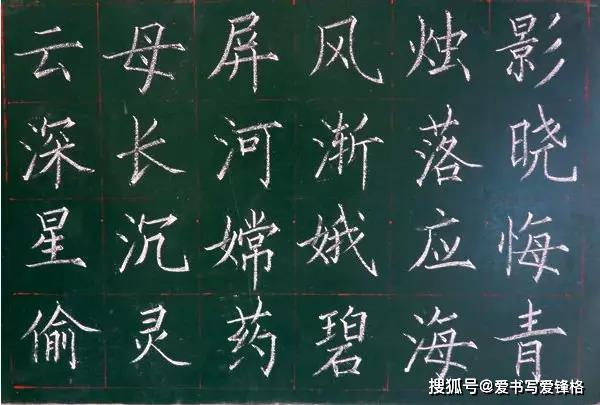 云母屏风烛影
深长河渐落晓
星沉嫦娥应悔
偷灵药碧海青
搜狐号@爱书写爱锋格